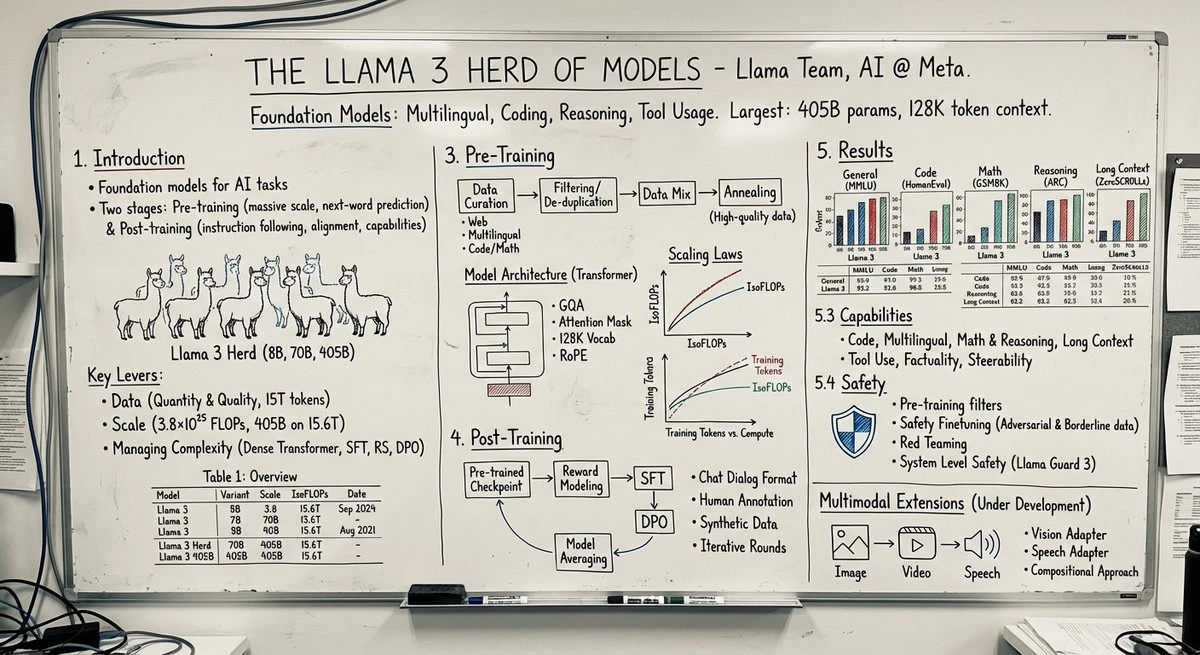 THE LLAMA 3 HERD OF MODELS - Llama Team, AI @ Meta.
Foundation Models: Multilingual, Coding, Reasoning, Tool Usage. Largest: 405B params, 128K token context.
1. Introduction
• Foundation models for AI tasks
• Two stages: Pre-training (massive scale, next-word prediction)
& Post-training (instruction following, alignment, capabilities)
Llama 3 Herd (8B, 70B, 405B)
Key Levers:
• Data (Quantity & Quality, 15T tokens)
• Scale (3.8×10²⁵ FLOPs, 405B on 15.6T)
• Managing Complexity (Dense Transformer, SFT, RS, DPO)
Table 1: Overview
Model Variant Scale IseFLOPs Date
Llama 3 9B 3.8 15.6T Sep 2024
Llama 3 7B 70B 13.6T -
Llama 3 9B 40B 15.6T Aug 2021
Llama 3 Herd 70B 405B 15.6T -
Llama 3 405B 405B 405B 15.6T -
3. Pre-Training
Data Curation
Filtering/ De-duplication
Data Mix
Annealing
(High-quality data)
• Web
• Multilingual
• Code/Math
Model Architecture (Transformer)
• GQA
• Attention Mask
• 128K Vocab
• RoPE
Scaling Laws
IsoFLOPs
IsoFLOPs
IsoFLOPs
Training Tokens
Training Tokens
IseFLOPs
Training Tokens vs. Compute
4. Post-Training
Pre-trained Checkpoint
Reward Modeling
SFT
DPO
Model Averaging
• Chat Dialog Format
• Human Annotation
• Synthetic Data
• Iterative Rounds
5. Results
General (MMLU)
Code (HomanEval)
Math (GSM8K)
Reasoning (ARC)
Long Context (ZcreSCROLLs)
Llama 3
Llame 3
Llame 3
Llama 3
MMLU Code Math
General
Llama 3
MMLU Code Math
Code
Code
Reasoning
Long Context
5.3 Capabilities
• Code, Multilingual, Math & Reasoning, Long Context
• Tool Use, Factuality, Steerability
5.4 Safety
• Pre-training filters
• Safety Finetuning (Adversarial & Borderline data)
• Red Teaming
• System Level Safety (Llama Guard 3)
Multimodal Extensions (Under Development)
Image
Video
Speech
• Vision Adapter
• Speech Adapter
• Compositional Approach